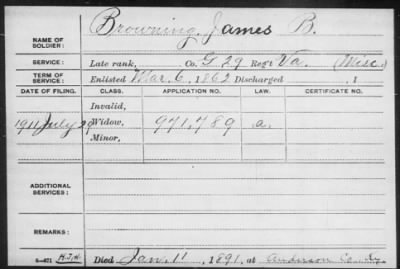 NAME OF SOLDIER: Browning, James B.
SERVICE: Late rank, Co. G 29 Reg't Va. (Misc.)
TERM OF SERVICE: Enlisted Mar. 6, 1862 Discharged , 1
DATE OF FILING. CLASS. APPLICATION NO. LAW. CERTIFICATE NO.
Invalid,
1911 July 29 Widow, 971,789 a.
Minor,
ADDITIONAL SERVICES:
REMARKS:
Died Jan. 11, 1891, at Anderson Co. Ky.